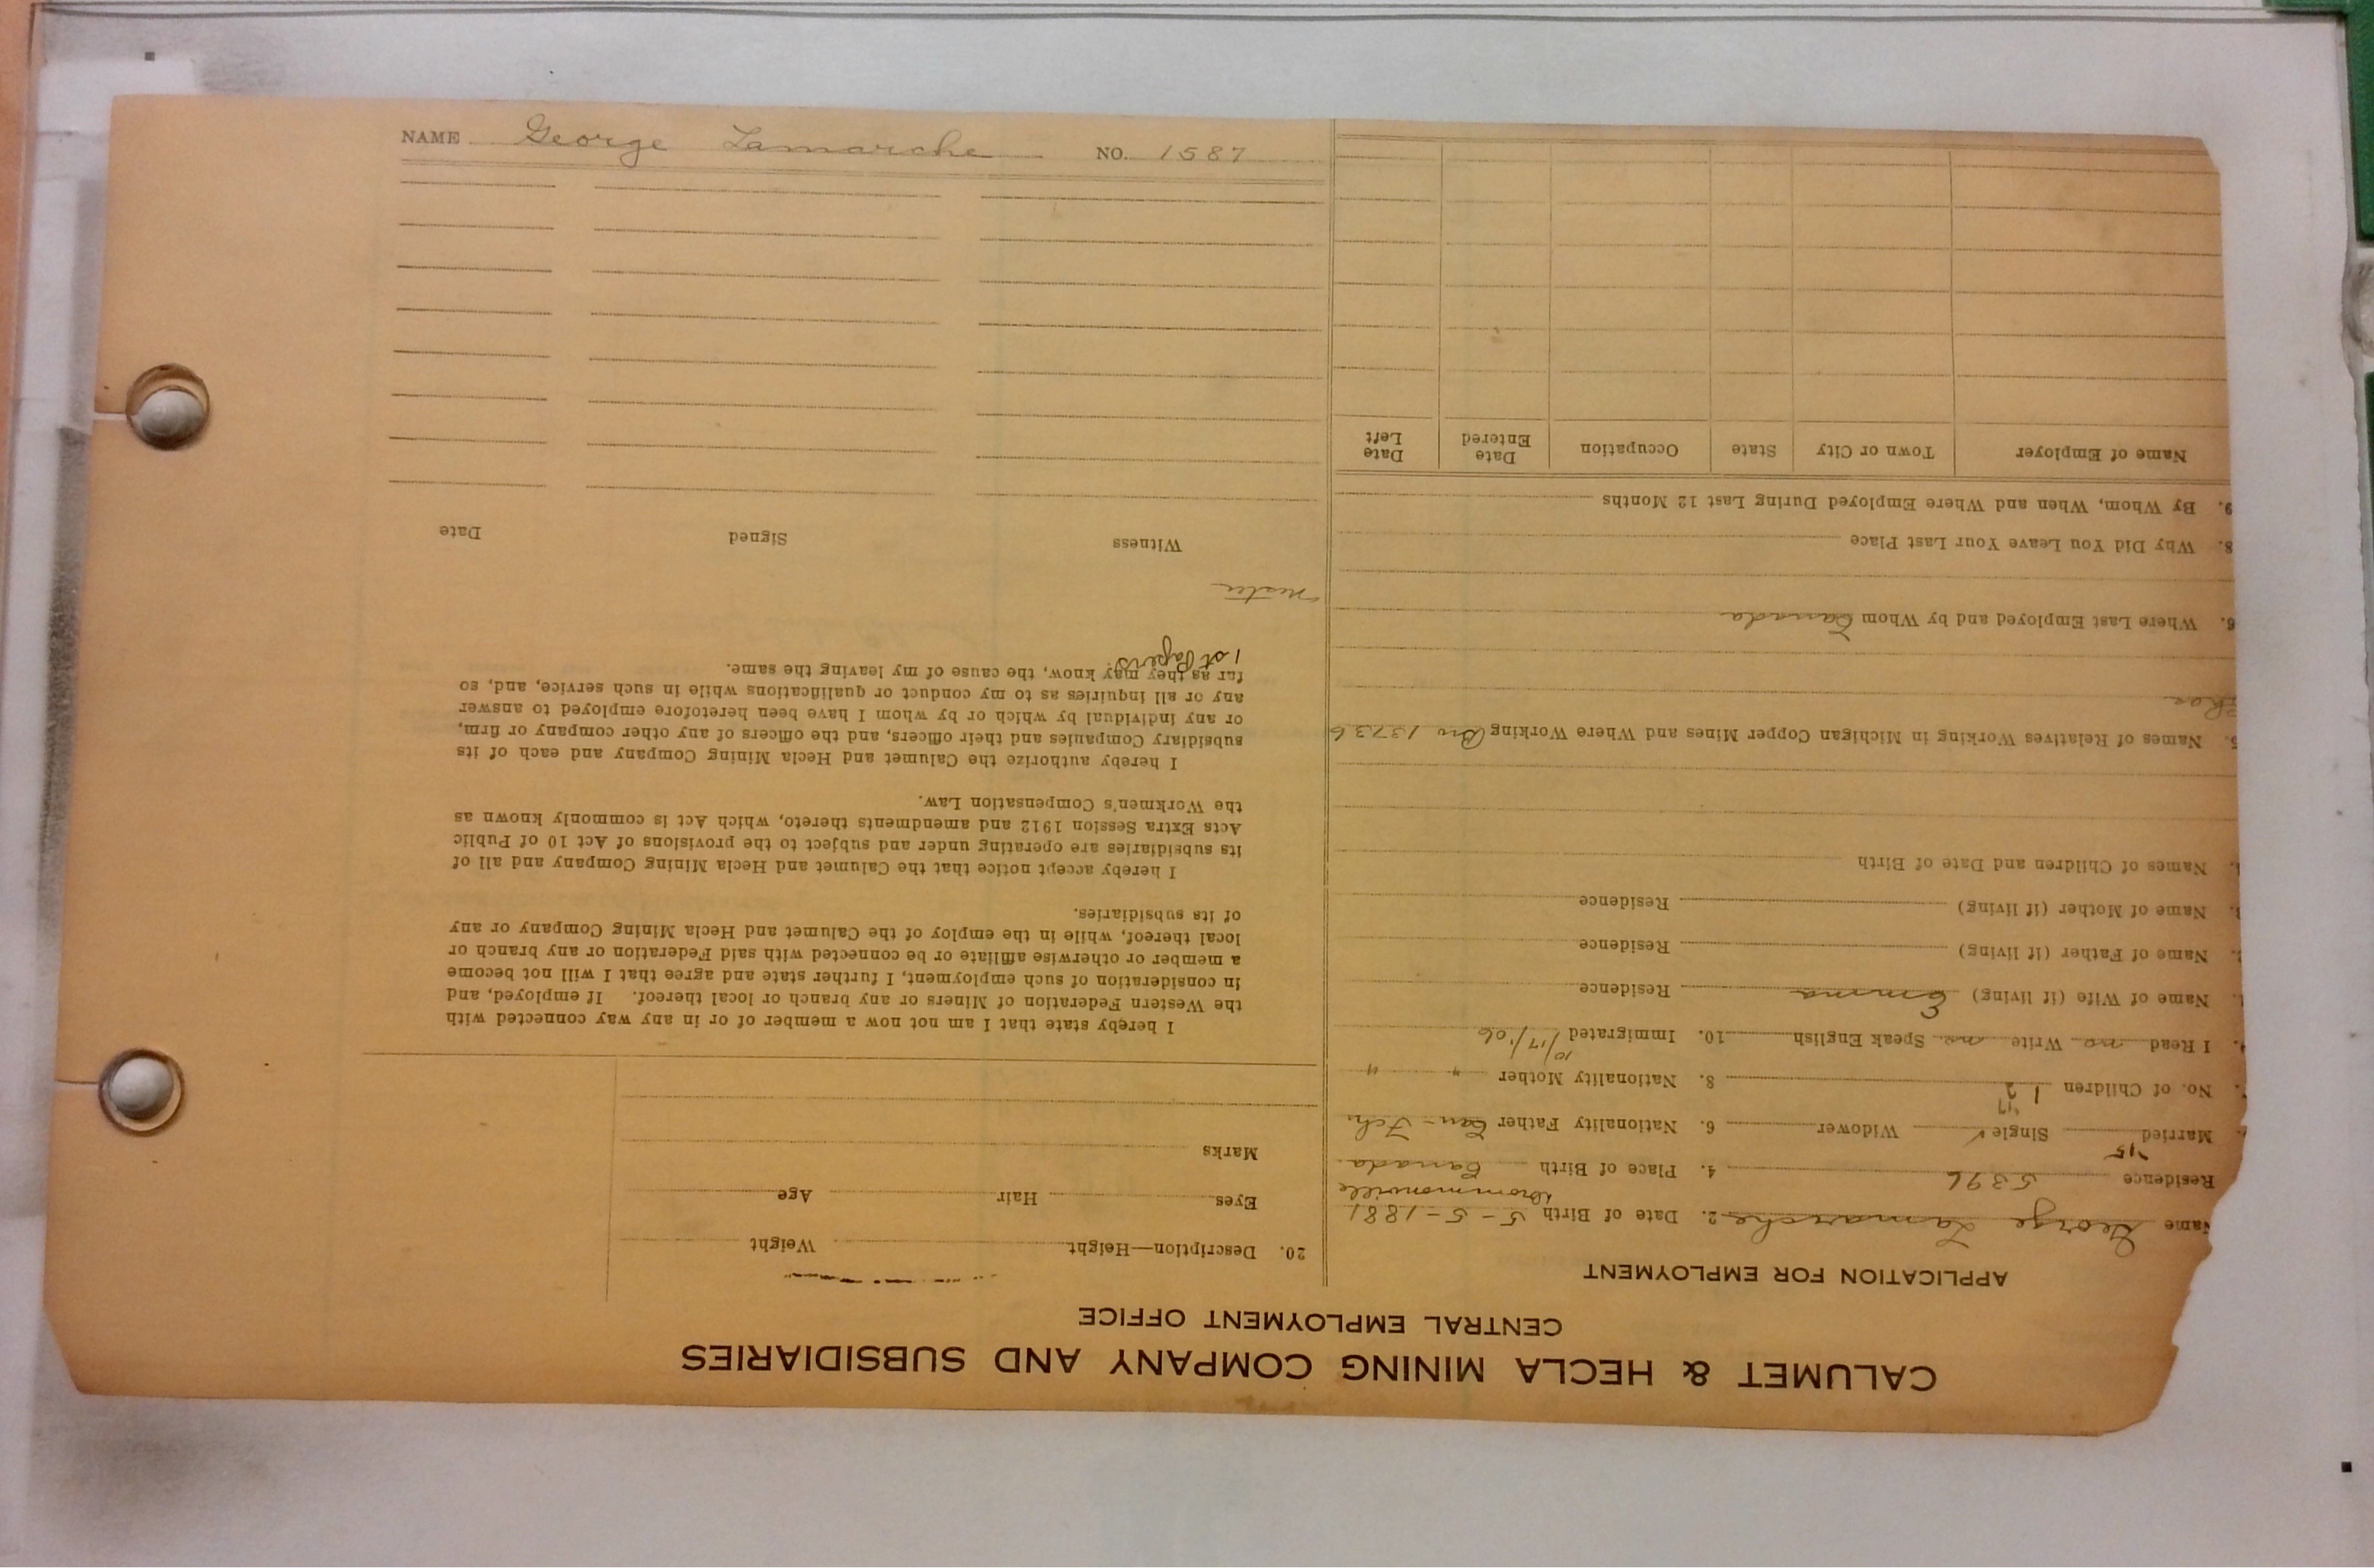 CALUMET & HECLA MINING COMPANY AND SUBSIDIARIES
CENTRAL EMPLOYMENT OFFICE
APPLICATION FOR EMPLOYMENT
Name George Lamarche 2. Date of Birth 5-5-1881
Drommonville
Residence 5396 4. Place of Birth Canada
'15
Married Single ✓ Widower 6. Nationality Father Can-Fch
'17
No. of Children 1 2 8. Nationality Mother " "
I Read no Write no Speak English 10. Immigrated 10/17/06
Name of Wife (if living) Emma Residence
Name of Father (if living) Residence
Name of Mother (if living) Residence
Names of Children and Date of Birth
5. Names of Relatives Working in Michigan Copper Mines and Where Working Bro 13736
6. Where Last Employed and by Whom Canada
8. Why Did You Leave Your Last Place
9. By Whom, When and Where Employed During Last 12 Months
Name of Employer Town or City State Occupation Date Entered Date Left
20. Description—Height Weight
Eyes Hair Age
Marks
I hereby state that I am not now a member of or in any way connected with
the Western Federation of Miners or any branch or local thereof. If employed, and
in consideration of such employment, I further state and agree that I will not become
a member or otherwise affiliate or be connected with said Federation or any branch or
local thereof, while in the employ of the Calumet and Hecla Mining Company or any
of its subsidiaries.
I hereby accept notice that the Calumet and Hecla Mining Company and all of
its subsidiaries are operating under and subject to the provisions of Act 10 of Public
Acts Extra Session 1912 and amendments thereto, which Act is commonly known as
the Workmen's Compensation Law.
I hereby authorize the Calumet and Hecla Mining Company and each of its
subsidiary Companies and their officers, and the officers of any other company or firm,
or any individual by which or by whom I have been heretofore employed to answer
any or all inquiries as to my conduct or qualifications while in such service, and, so
far as they may know, the cause of my leaving the same.
1st Papers
Witness Signed Date
NAME George Lamarche NO. 1587